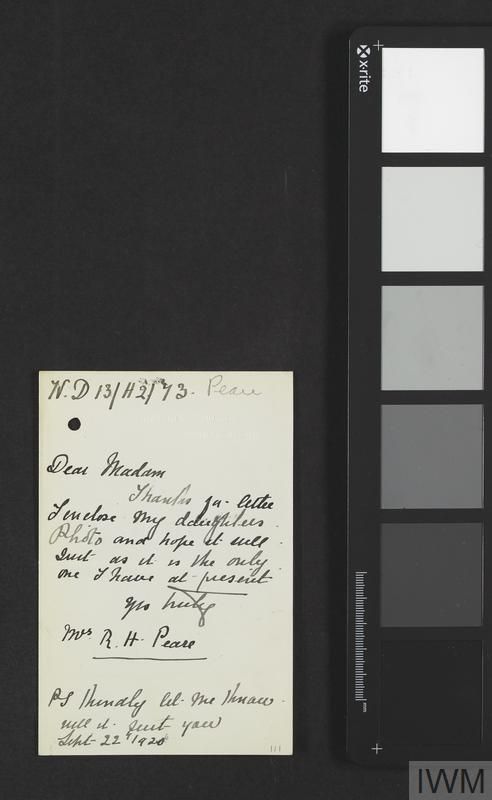 W.D 13/H2/73. Peare
Dear Madam
Thanks for letter
I enclose my daughters
Photo and hope it will
Suit as it is the only
one I have at present
yrs truly
Mrs R. H. Peare
PS Kindly let me know
will it suit you
Sept 22 1920
111
x·rite
mm
IWM